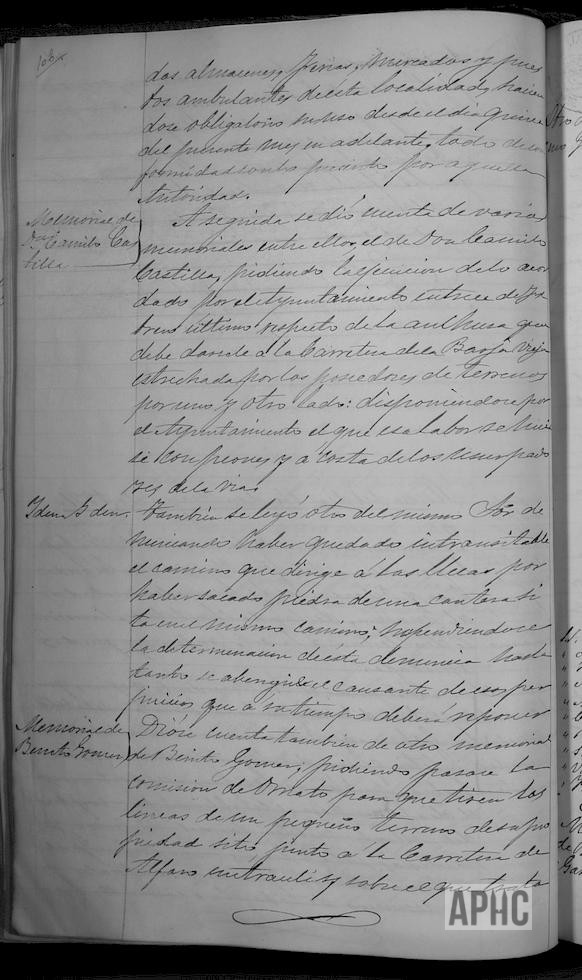 dos almacenes, ferias, mercados y pues
tos ambulantes de esta localidad, hacien
dose obligatorio su uso desde el dia quince
del presente mes en adelante, todo de con
formidad con lo prescrito por aquella
Autoridad.
Memorial de
Dn Camilo Cas
tilla
A seguida se dió cuenta de varios
memoriales entre ellos, el de Don Camilo
Castilla, pidiendo la ejecucion de lo acor
dado por el Ayuntamiento en trece de Fe
brero último respecto de la anchura que
debe darsele á la Carretera de la Barja Vieja
estrechada por los poseedores de terrenos
por uno y otro lado: disponiendose por
el Ayuntamiento el que esa labor se hicie
se con peones y a costa de los usurpado
res de la via.
Idem Idem
Tambien se leyó otro del mismo Sor. de
nunciando haber quedado intransitable
el camino que dirige á las Llecas por
haber sacado piedra de una cantera si
ta en el mismo camino; suspendiendose
la determinacion de ésta denuncia hasta
tanto se aberigüe el causante de esos per
juicios que a su tiempo deberá reponer
Memorial de
Benito Gomez
Dióse cuenta tambien de otro memorial
de Benito Gomez, pidiendo pasase la
comision de Ornato para que tiren las
lineas de un pequeño terreno de su pro
piedad sito junto á la Carretera de
Alfaro sobre el que trata
APHC